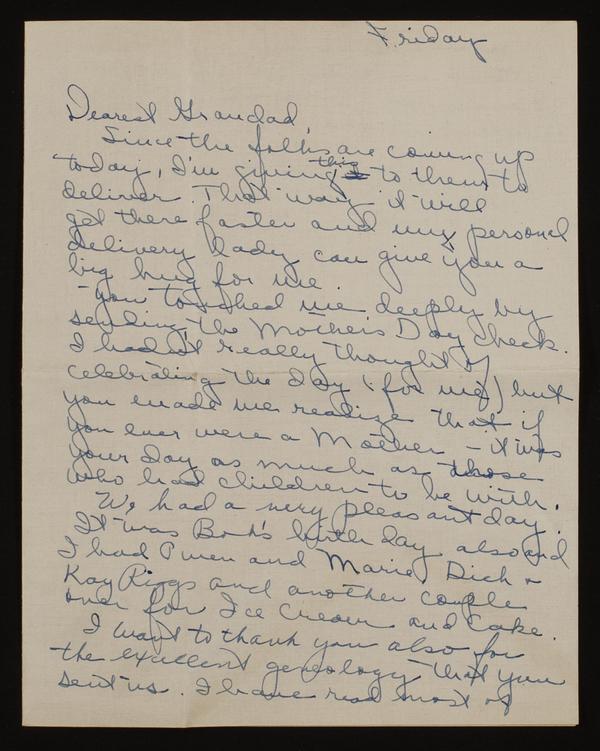 Friday
Dearest Grandad,
Since the folks are coming up
today, I'm giving this to them to
deliver. That way it will
get there faster and my personel
delivery lady can give you a
big hug for me.
You touched me deeply by
sending the Mother's Day check.
I hadn't really thought of
celebrating the day (for me) but
you made me realize that if
you ever were a Mother - it was
your day as much as those
who had children to be with.
We had a very pleasant day.
It was Bob's birthday also and
I had Owen and Marie, Dick &
Kay Riggs and another couple
over for Ice Cream and Cake.
I want to thank you also for
the excellent geneology that you
sent us. I have read most of